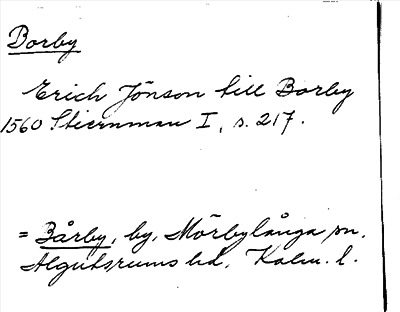 Borby
Erich Jönson till Borby
1560 Stiernman I, s. 217.
= Bårby, by, Mörbylånga sn,
Algutsrums hd, Kalm. l.